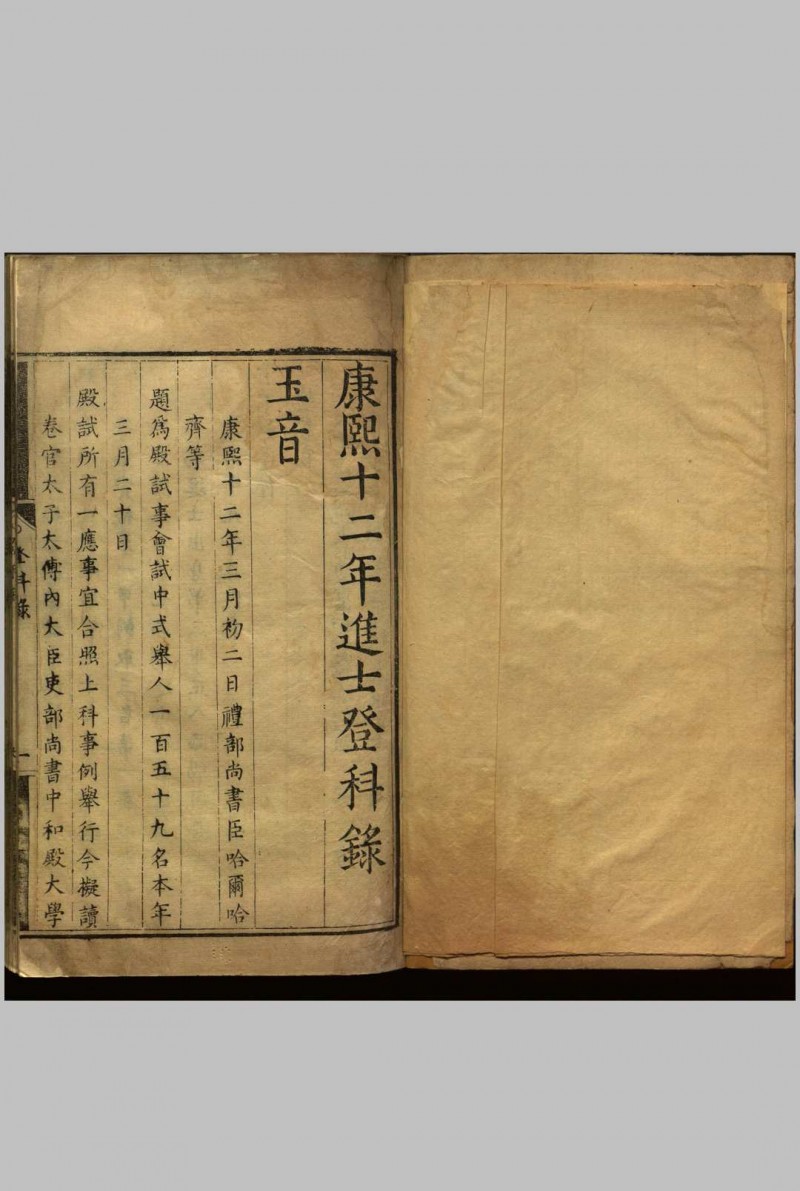 康熙十二年進士登科錄
玉音
康熙十二年三月初二日禮部尚書臣哈爾哈
齊等
題為殿試事會試中式舉人一百五十九名本年
三月二十日
殿試所有一應事宜合照上科事例舉行今擬讀
卷官太子太傅內大臣吏部尚書中和殿大學
登科錄
一